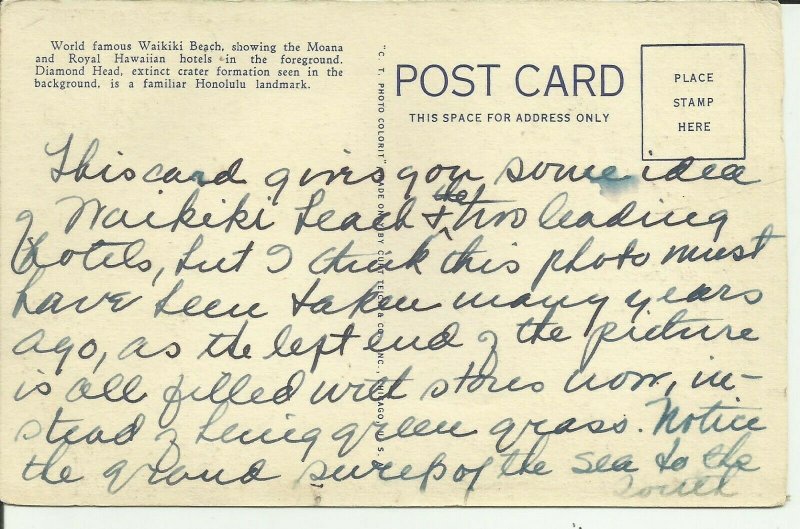 World famous Waikiki Beach, showing the Moana
and Royal Hawaiian hotels in the foreground.
Diamond Head, extinct crater formation seen in the
background, is a familiar Honolulu landmark.
"C. T. PHOTO COLORIT", MADE ONLY BY CURT TEICH & CO., INC., CHICAGO, U. S.
POST CARD
THIS SPACE FOR ADDRESS ONLY
PLACE
STAMP
HERE
This card gives you some idea
of Waikiki beach & the two leading
hotels, but I think this photo must
have been taken many years
ago, as the left end of the picture
is all filled with stores now, in-
stead of being green grass. Notice
the grand sweep of the sea to the
South